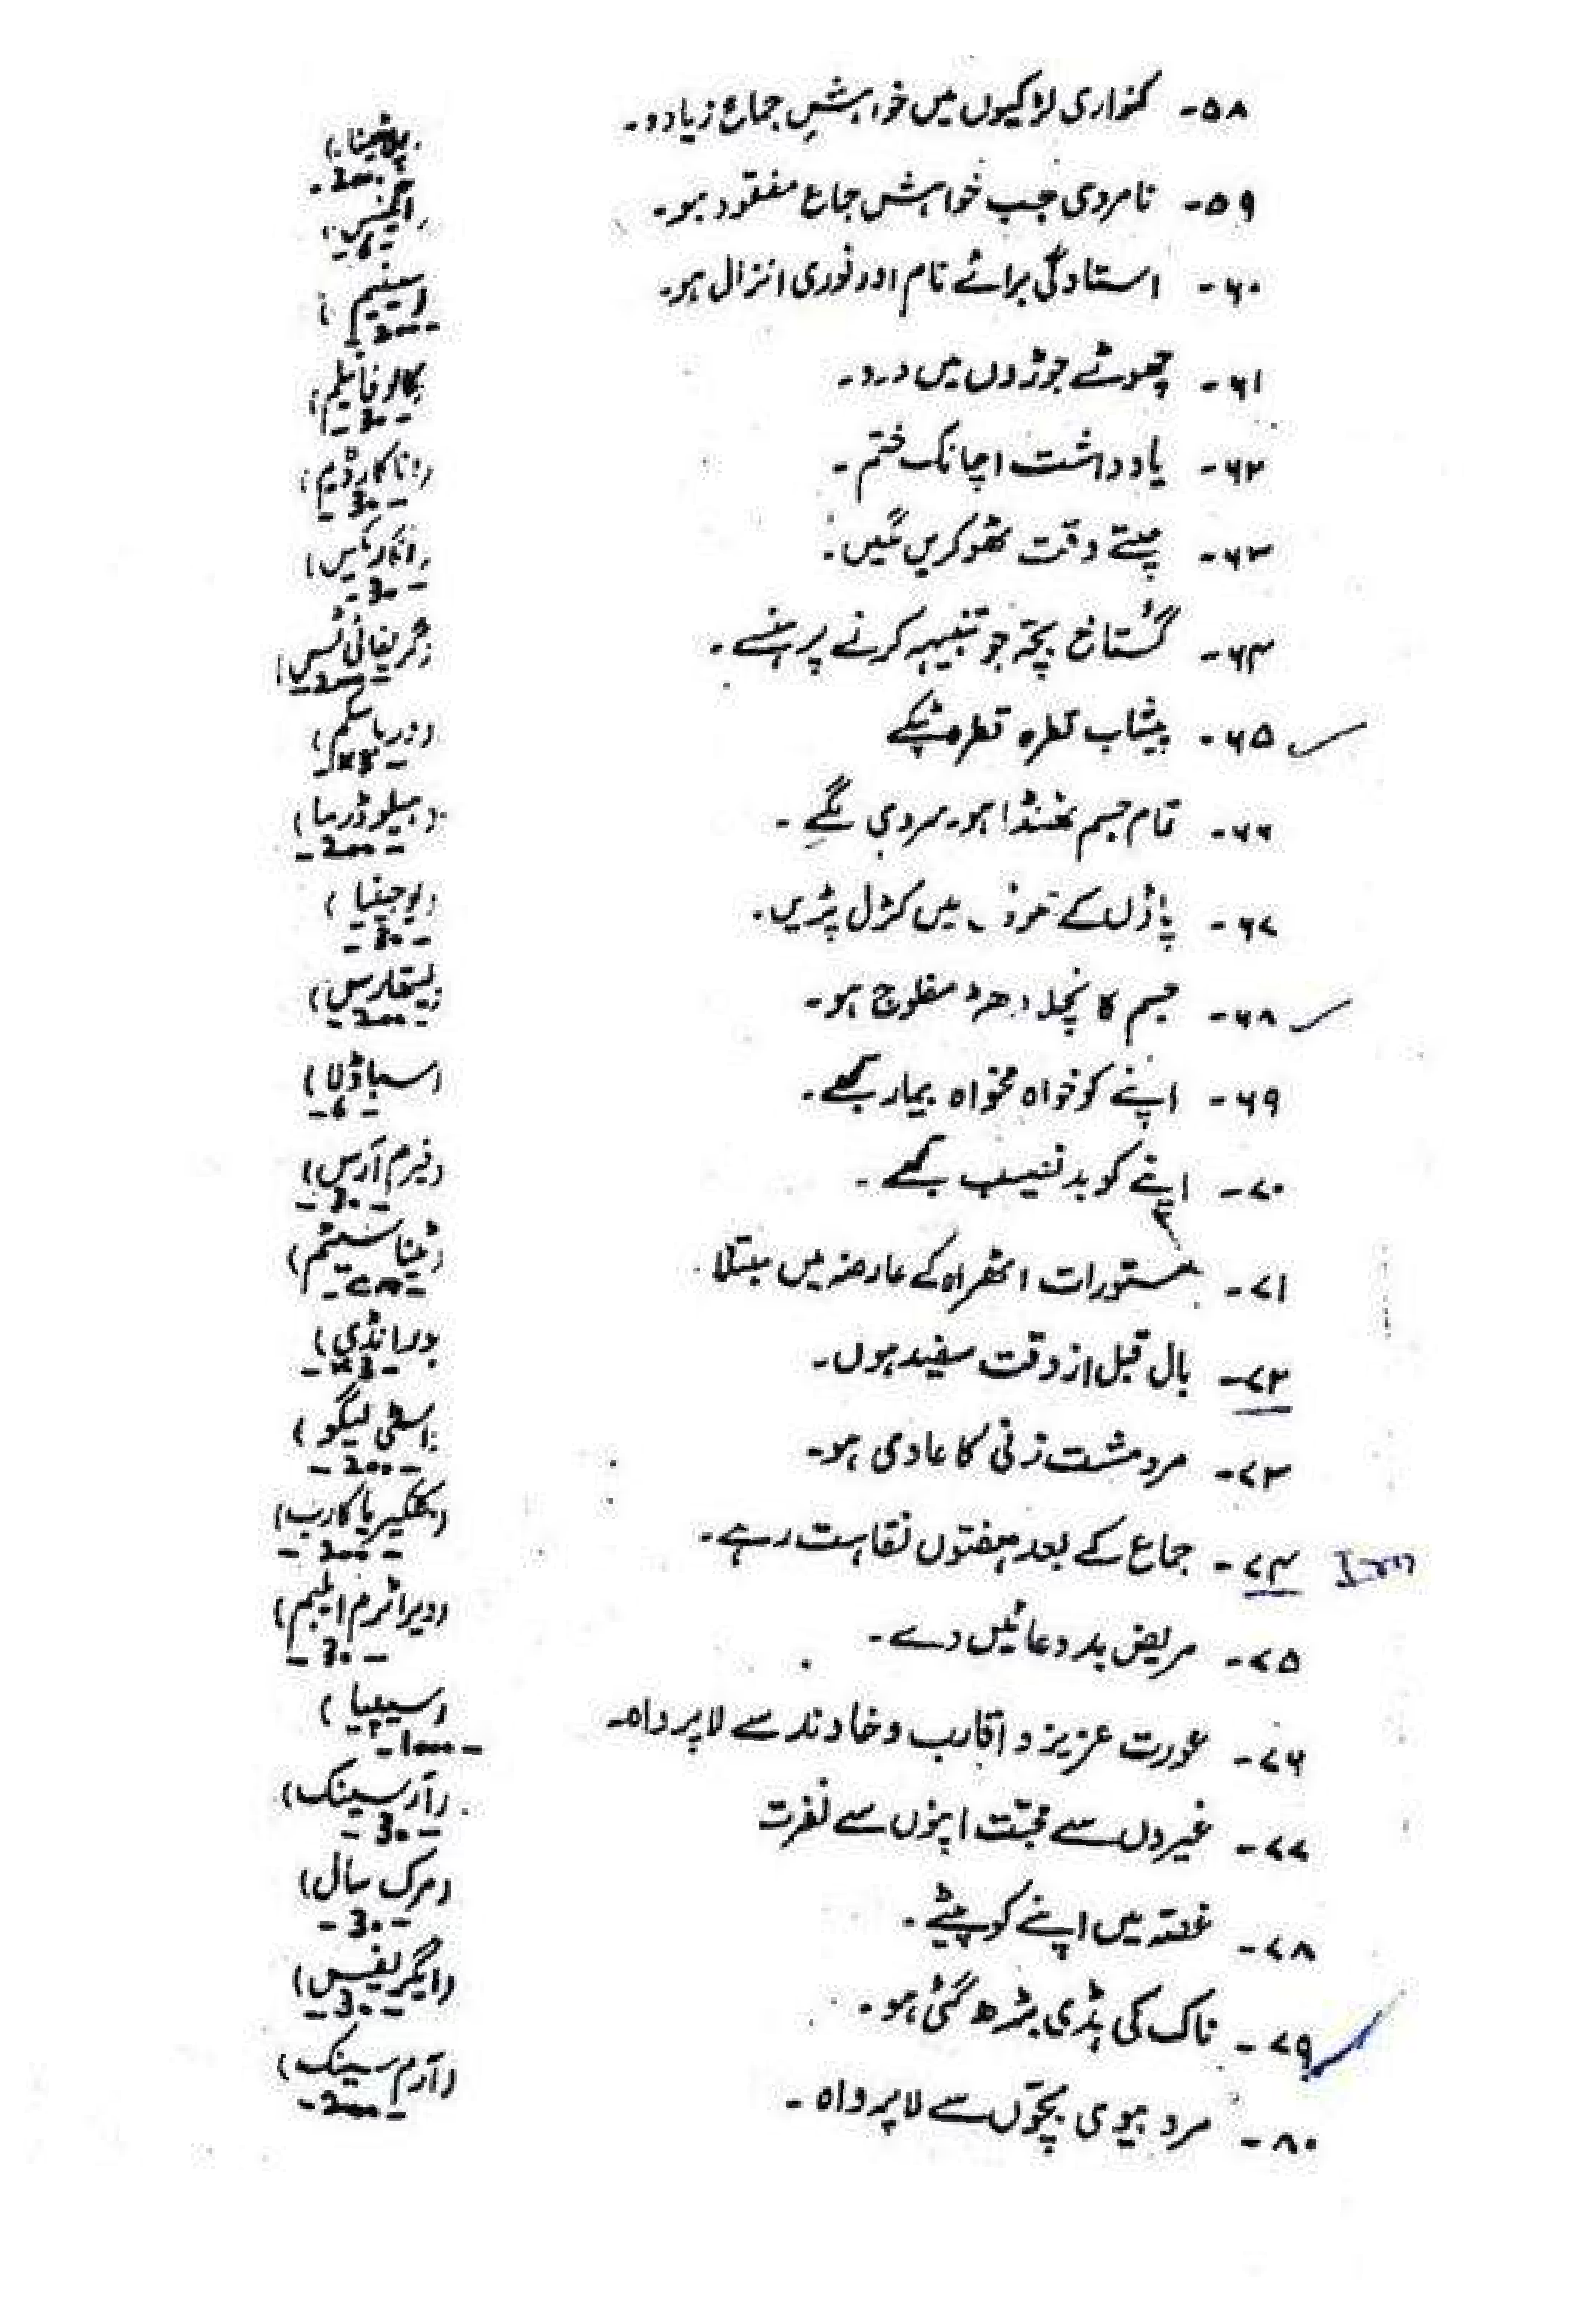 ۵۸۔ کنواری لڑکیوں میں خواہشِ جماع زیادہ۔ (پلاٹینا) -200-
۵۹۔ نامردی جب خواہش جماع مفقود ہو۔ -6-
۶۰۔ استادگی برائے نام اور فوری انزال ہو۔ -200-
۶۱۔ چھوٹے جوڑوں میں درد۔ (کالوفائیلم) -30-
۶۲۔ یادداشت اچانک ختم۔ (اناکارڈیم) -30-
۶۳۔ چلتے وقت ٹھوکریں لگیں۔ (اگاریکس) -30-
۶۴۔ گستاخ بچہ جو تنبیہہ کرنے پر ہنسے۔ (گریفائٹس) -200-
۶۵۔ پیشاب قطرہ قطرہ ٹپکے
۶۶۔ تمام جسم ٹھنڈا ہو۔ سردی لگے۔ (ہیلوڈرما) -200-
۶۷۔ پاؤں کے تلوؤں میں کڑل پڑیں۔ (یوجینیا) -30-
۶۸۔ جسم کا نچلا دھڑ مفلوج ہو۔ (لیتھارس) -200-
۶۹۔ اپنے کو خواہ مخواہ بیمار سمجھے۔ (سباڈلا) -6-
۷۰۔ اپنے کو بدنصیب سمجھے۔ -30-
۷۱۔ مستورات اٹھراہ کے عارضہ میں مبتلا۔
۷۲۔ بال قبل از وقت سفید ہوں۔
۷۳۔ مرد مشت زنی کا عادی ہو۔ -200-
۷۴۔ جماع کے بعد ہفتوں نقاہت رہے۔ (کلکیریا کارب) -200-
۷۵۔ مریض بددعائیں دے۔ (ویراٹرم ایلبم) -30-
۷۶۔ عورت عزیز و اقارب و خاوند سے لاپرواہ۔ (سیپیا) -1000-
۷۷۔ غیروں سے محبت اپنوں سے نفرت (آرسینک) -30-
۷۸۔ غصہ میں اپنے کو پیٹے۔ (مرک سال) -30-
۷۹۔ ناک کی ہڈی بڑھ گئی ہو۔ -30-
۸۰۔ مرد بیوی بچوں سے لاپرواہ۔ -200-